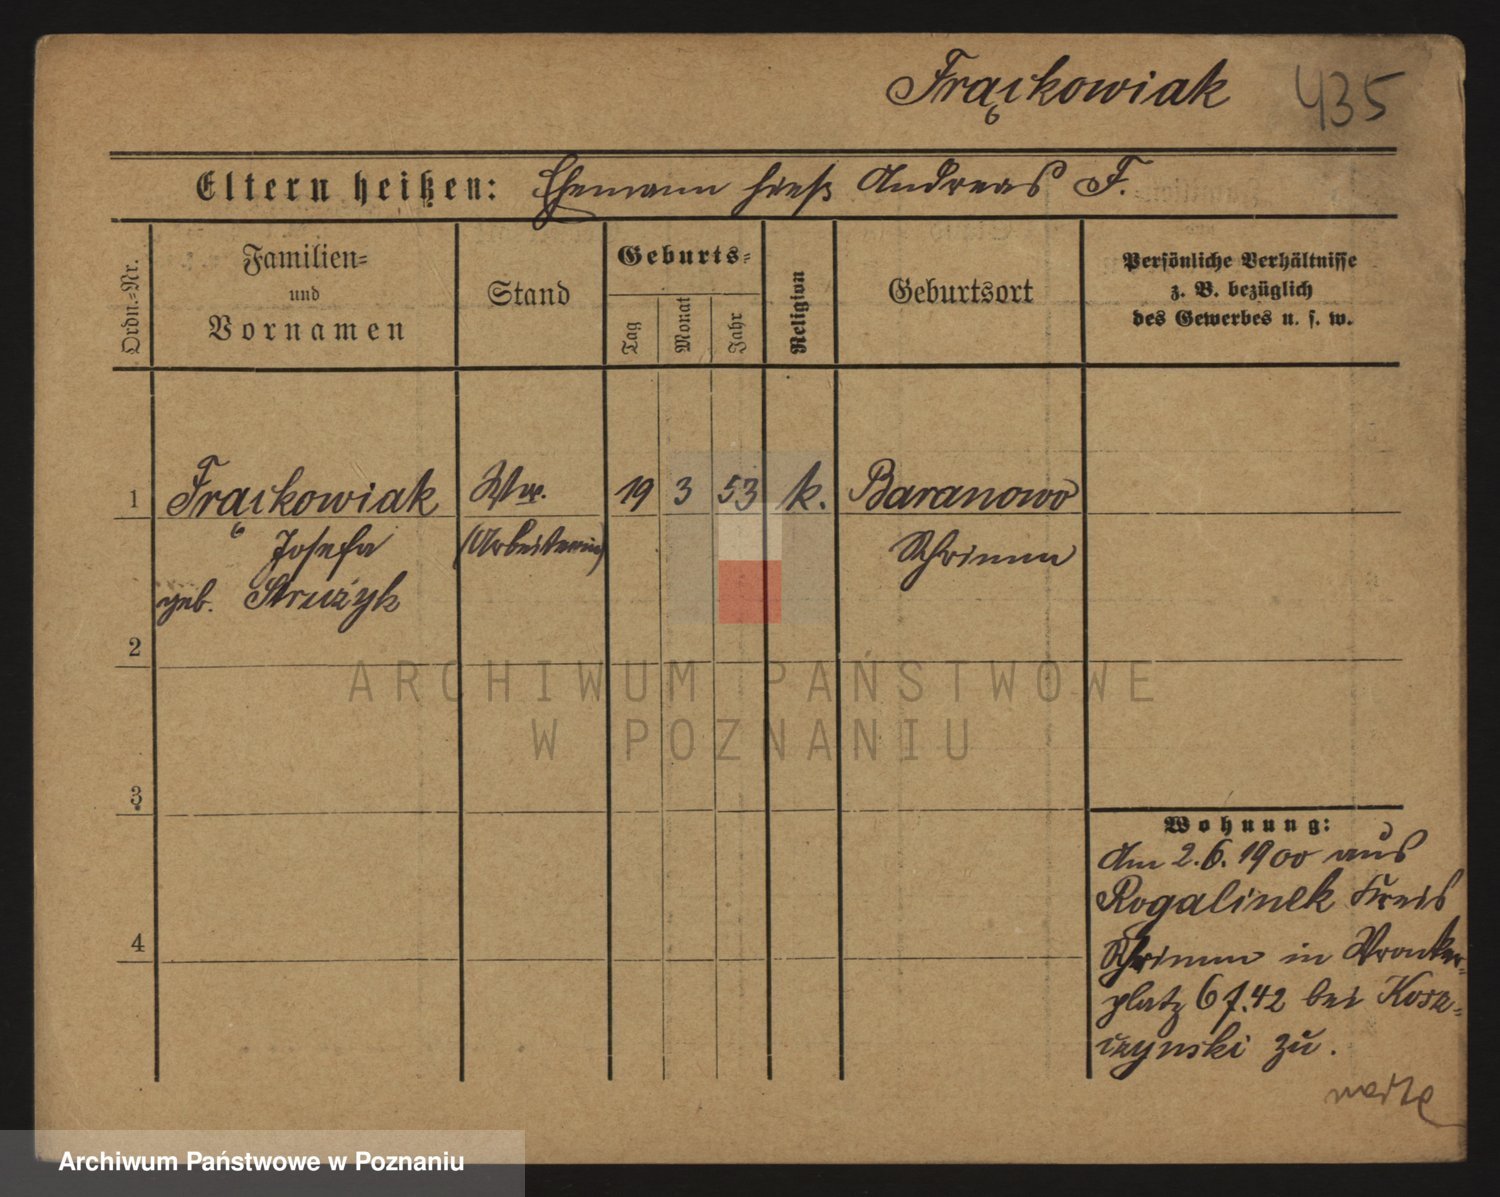 Frąckowiak 435
Eltern heißen: Ehemann hieß Andreas F.
Ordn.-Nr.
Familien-
und
Vornamen
Stand
Geburts-
Tag
Monat
Jahr
Religion
Geburtsort
Persönliche Verhältnisse
z. B. bezüglich
des Gewerbes u. s. w.
1 Frąckowiak Ww. 19 3 53 k. Baranowo
Josefa (Arbeiterin) Schrimm
geb. Strużyk
2
3
4
Wohnung:
Am 2.6.1900 aus
Rogalinek Kreis
Schrimm in Wronker-
platz 6 f. 42 bei Kosz-
czynski zu.
ARCHIWUM PAŃSTWOWE
W POZNANIU
Archiwum Państwowe w Poznaniu